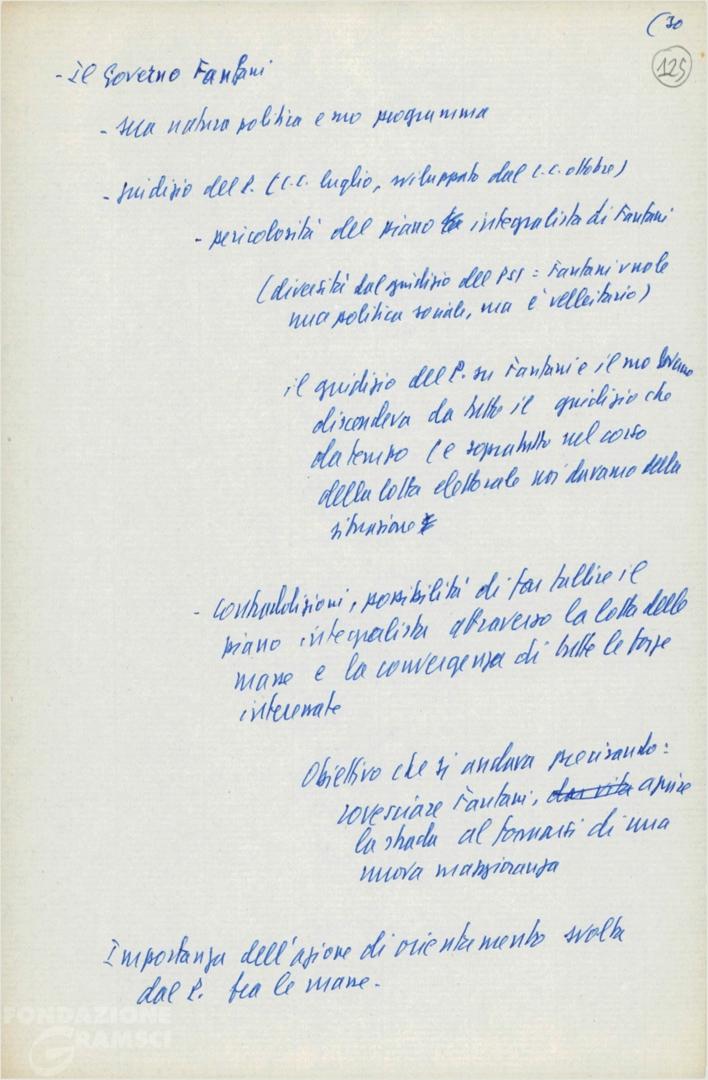 (30
125
- Il Governo Fanfani
- sua natura politica e suo programma
- giudizio del P. (C.C. luglio, sviluppato dal C.C. ottobre)
- pericolosità del piano integralista di Fanfani
(diversità dal giudizio del PSI = Fanfani vuole
una politica sociale, ma è velleitario)
il giudizio del P. su Fanfani e il suo Governo
discendeva da tutto il giudizio che
da tempo (e sopratutto nel corso
della lotta elettorale noi davamo della
situazione
- contraddizioni, possibilità di far fallire il
piano integralista attraverso la lotta delle
masse e la convergenza di tutte le forze
interessate
Obiettivo che si andava precisando:
rovesciare Fanfani, dar vita aprire
la strada al formarsi di una
nuova maggioranza
Importanza dell'azione di orientamento svolta
dal P. tra le masse.
FONDAZIONE
GRAMSCI